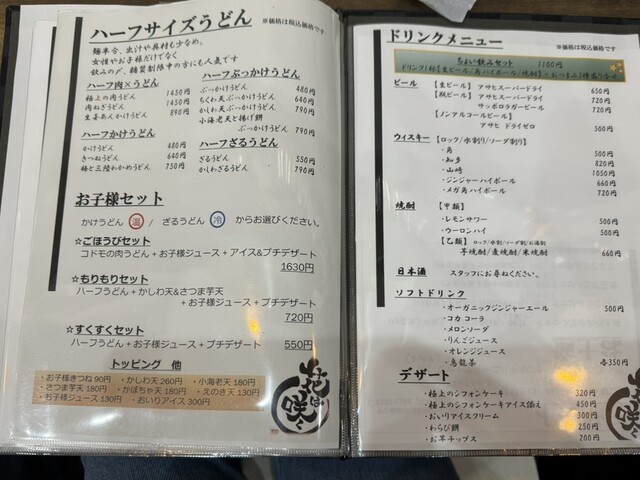 ハーフサイズうどん
※価格は税込価格です
麺半分、出汁や具材も少なめ。
女性やお子様だけでなく
飲みの〆、糖質制限中の方にも人気です
ハーフ肉×うどん
極上の肉うどん 1450円
肉ねぎうどん 1450円
生姜あんかけうどん 890円
ハーフかけうどん
かけうどん 480円
きつねうどん 640円
梅と三陸わかめうどん 750円
ハーフぶっかけうどん
ぶっかけうどん 480円
ちくわ天ぶっかけうどん 640円
かしわ天ぶっかけうどん 790円
小海老天と揚げ餅
ぶっかけうどん 790円
ハーフざるうどん
ざるうどん 550円
かしわざるうどん 790円
お子様セット
かけうどん 温 / ざるうどん 冷 からお選びください。
☆ごほうびセット
コドモの肉うどん+お子様ジュース+アイス&プチデザート
1630円
☆もりもりセット
ハーフうどん+かしわ天&さつま芋天
+お子様ジュース+プチデザート
720円
☆すくすくセット
ハーフうどん+お子様ジュース+プチデザート 550円
トッピング 他
・お子様きつね 90円 ・かしわ天 260円 ・小海老天 180円
・さつま芋天 180円 ・かぼちゃ天 180円 ・えのき天 130円
・お子様ジュース 130円 ・おいりアイス 300円
ドリンクメニュー
※価格は税込価格です
ちょい飲みセット 1100円
ドリンク1杯【生ビール/角ハイボール/焼酎】
ビール 【生ビール】アサヒスーパードライ 650円
【瓶ビール】アサヒスーパードライ 720円
サッポロラガービール 720円
【ノンアルコールビール】
アサヒ ドライゼロ 500円
ウィスキー 【ロック/水割り/ソーダ割り】
・角 500円
・知多 820円
・山崎 1050円
・ジンジャーハイボール 660円
・メガ角ハイボール 720円
焼酎 【甲類】
・レモンサワー 500円
・ウーロンハイ 500円
【乙類】 ロック/水割/ソーダ割/お湯割
芋焼酎/麦焼酎/米焼酎 660円
日本酒 スタッフにお尋ねください。
ソフトドリンク
・オーガニックジンジャーエール 500円
・コカ コーラ
・メロンソーダ
・りんごジュース
・オレンジジュース
・烏龍茶 各350円
デザート
・極上のシフォンケーキ 320円
・極上のシフォンケーキアイス添え 450円
・おいりアイスクリーム 300円
・わらび餅 250円
・お芋チップス 200円